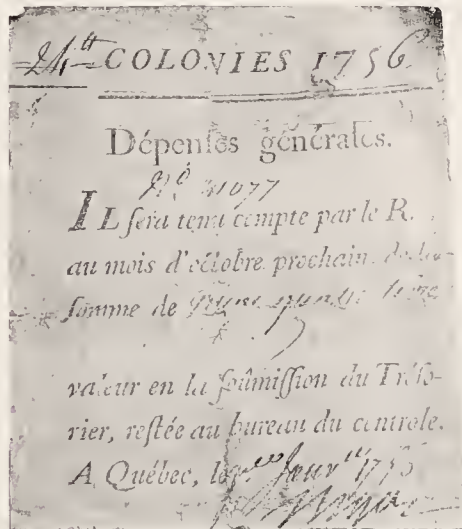 24ᵗᵗ COLONIES 1756.
Dépenſes générales.
Nº
IL ſera tenu compte par le R.
au mois d'octobre prochain de la
ſomme de
valeur en la ſoûmiſſion du Tréſo-
rier, reſtée au bureau du controle.
A Québec, le Janv